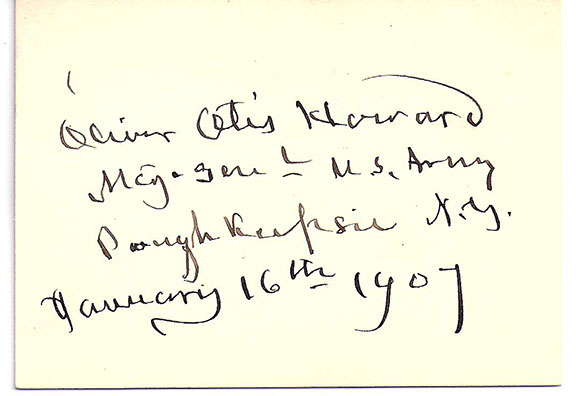 Oliver Otis Howard
Maj. Genl U.S. Army
Poughkeepsie N.Y.
January 16th 1907